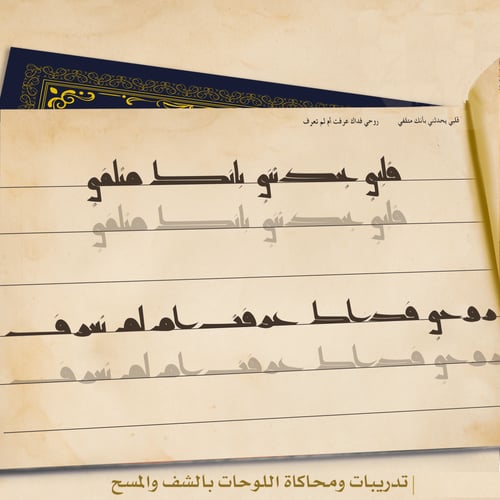 قلبي يحدثني بأنك متلفي روحي فداك عرفت أم لم تعرف
قلبي يحدثني بأنك متلفي
قلبي يحدثني بأنك متلفي
روحي فداك عرفت أم لم تعرف
روحي فداك عرفت أم لم تعرف
تدريبات ومحاكاة اللوحات بالشف والمسح